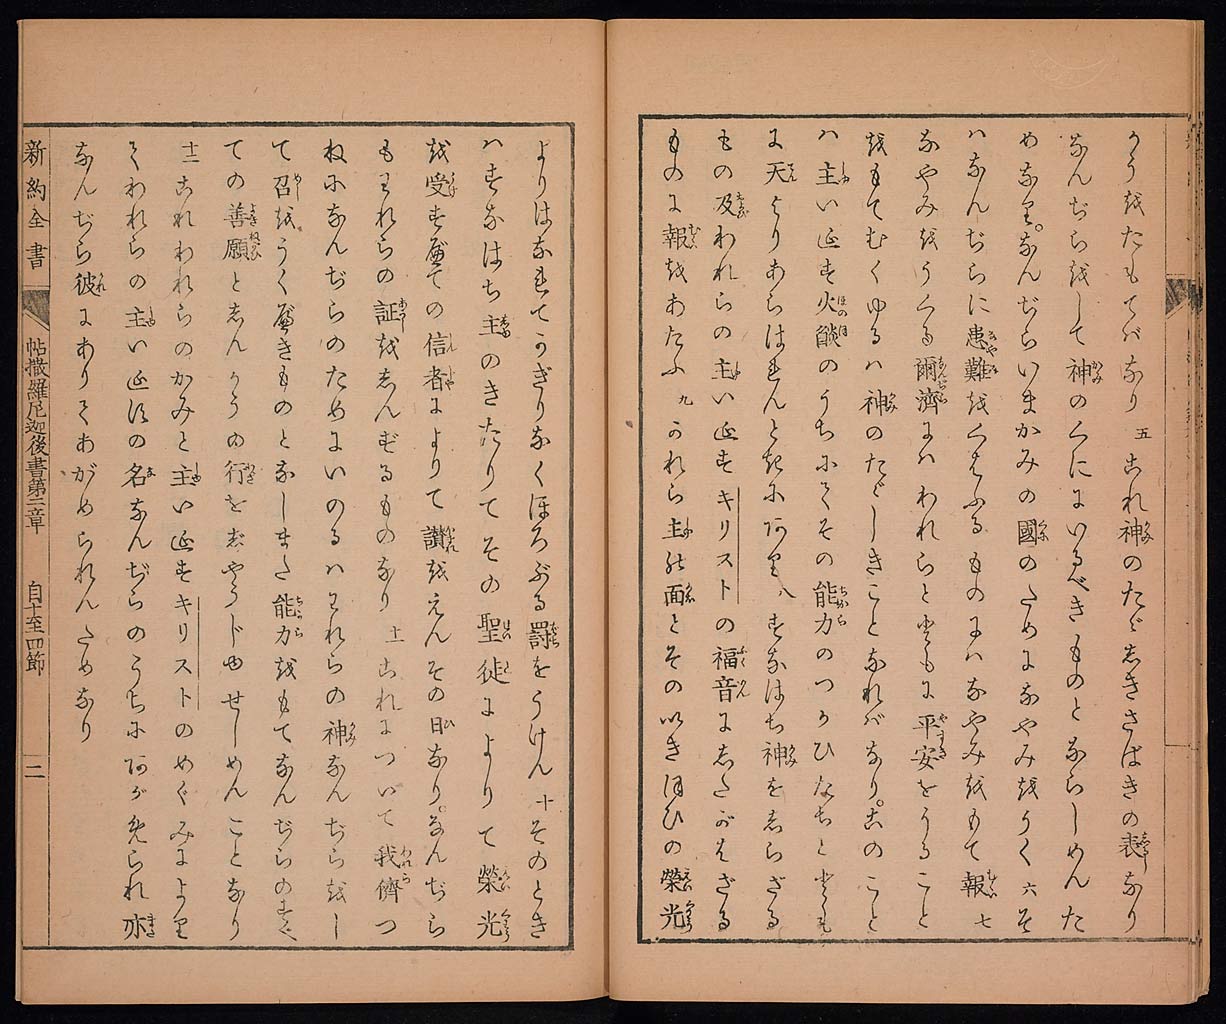 かうをたもてバなり 五 これ神のたゞしきさばきの表なり
なんぢらをして神のくににいるべきものとならしめんた
めなり。なんぢらいまかみの國のためになやみをうく 六 そ
ハなんぢらに患難をくはふるものにハなやみをもて報 七
なやみをうくる爾濟にハわれらと共に平安をうること
をもてむくゆるハ神のたゞしきことなればなり。このこと
ハ主いエス火燄のうちにてその能力のつかひたちと共
に天よりあらはれんときにあり 八 すなはち神をしらざる
もの及われらの主いエスキリストの福音にしたがはざる
ものに報をあたふ 九 かれら主の面とそのいきほひの榮光
よりはなれてかぎりなくほろぶる罰をうけん 十 そのとき
ハすなはち主のきたりてその聖徒によりて榮光
を受すべての信者によりて讃をえんその日なり。なんぢら
もわれらの証をしんずるものなり 十一 これについて我儕つ
ねになんぢらのためにいのるハわれらの神なんぢらをし
て召をうくべきものとなしまた能力をもてなんぢらのすべ
ての善願としんかうの行をじやうじゆせしめんことなり
十二 これわれらのかみと主いエスキリストのめぐみにより
てわれらの主いエスの名なんぢらのうちにあがめられ亦
なんぢら彼にありてあがめられんためなり
新約全書 帖撒羅尼迦後書第二章 自十至四節 二